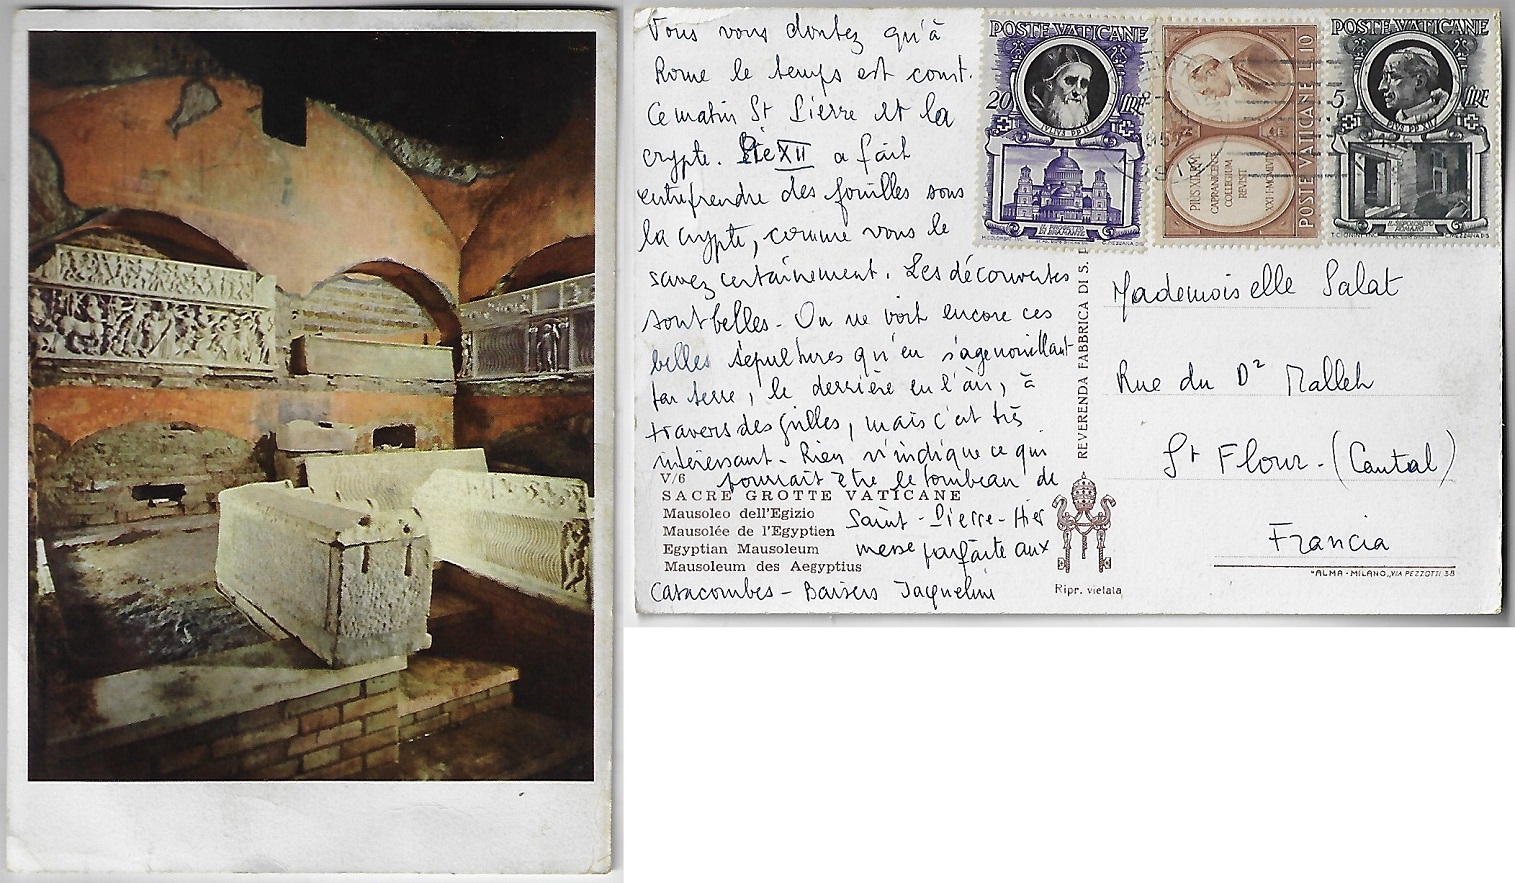 Vous vous doutez qu'à
Rome le temps est court.
Ce matin St Pierre et la
crypte. Pie XII a fait
entreprendre des fouilles sous
la crypte, comme vous le
savez certainement. Les découvertes
sont belles - On ne voit encore ces
belles sépultures qu'en s'agenouillant
par terre, le derrière en l'air, à
travers des grilles, mais c'est très
intéressant - Rien n'indique ce qui
pourrait être le tombeau de
Saint-Pierre - Hier
messe parfaite aux
Catacombes - Baisers Jacqueline
V/6
SACRE GROTTE VATICANE
Mausoleo dell'Egizio
Mausolée de l'Egyptien
Egyptian Mausoleum
Mausoleum des Aegyptius
REVERENDA FABBRICA DI S. P
Ripr. vietata
POSTE VATICANE
20 LIRE
IVLIVS PP II
IL PROGETTO
DI BRAMANTE
POSTE VATICANE L. 10
PIUS XII P.M.
CAPRANICENSE
COLLEGIUM
REVISIT
XXI-I-MCMLVII
POSTE VATICANE
5 LIRE
PIVS PP XII
IL SEPOLCRETO
ROMANO
Mademoiselle Salat
Rue du Dr Mallet
St Flour - (Cantal)
Francia
"ALMA - MILANO„ VIA PEZZOTTI 38